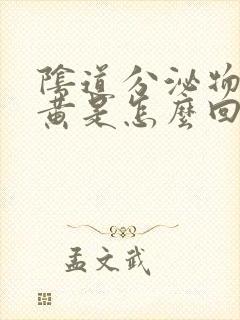 陰道分泌物
黄是怎麼回
孟文武